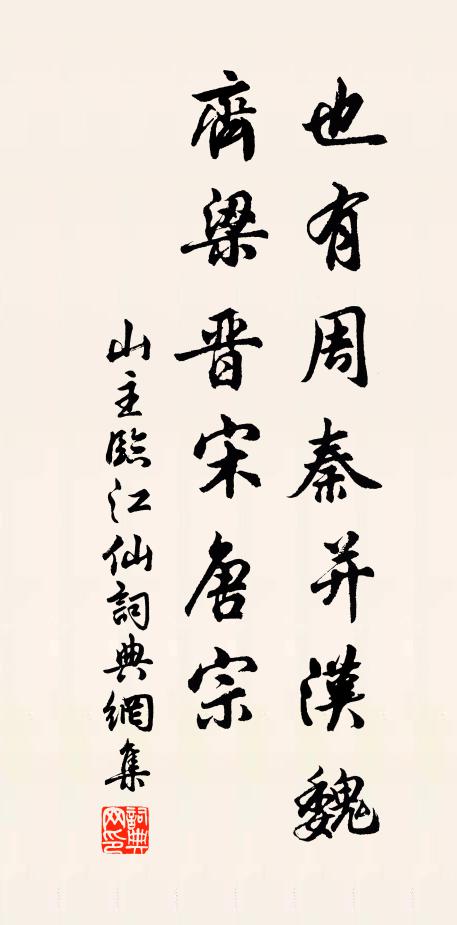 也有周秦并漢魏
齊梁晋宋唐宗
山主臨江仙詞典網集
詞典網印